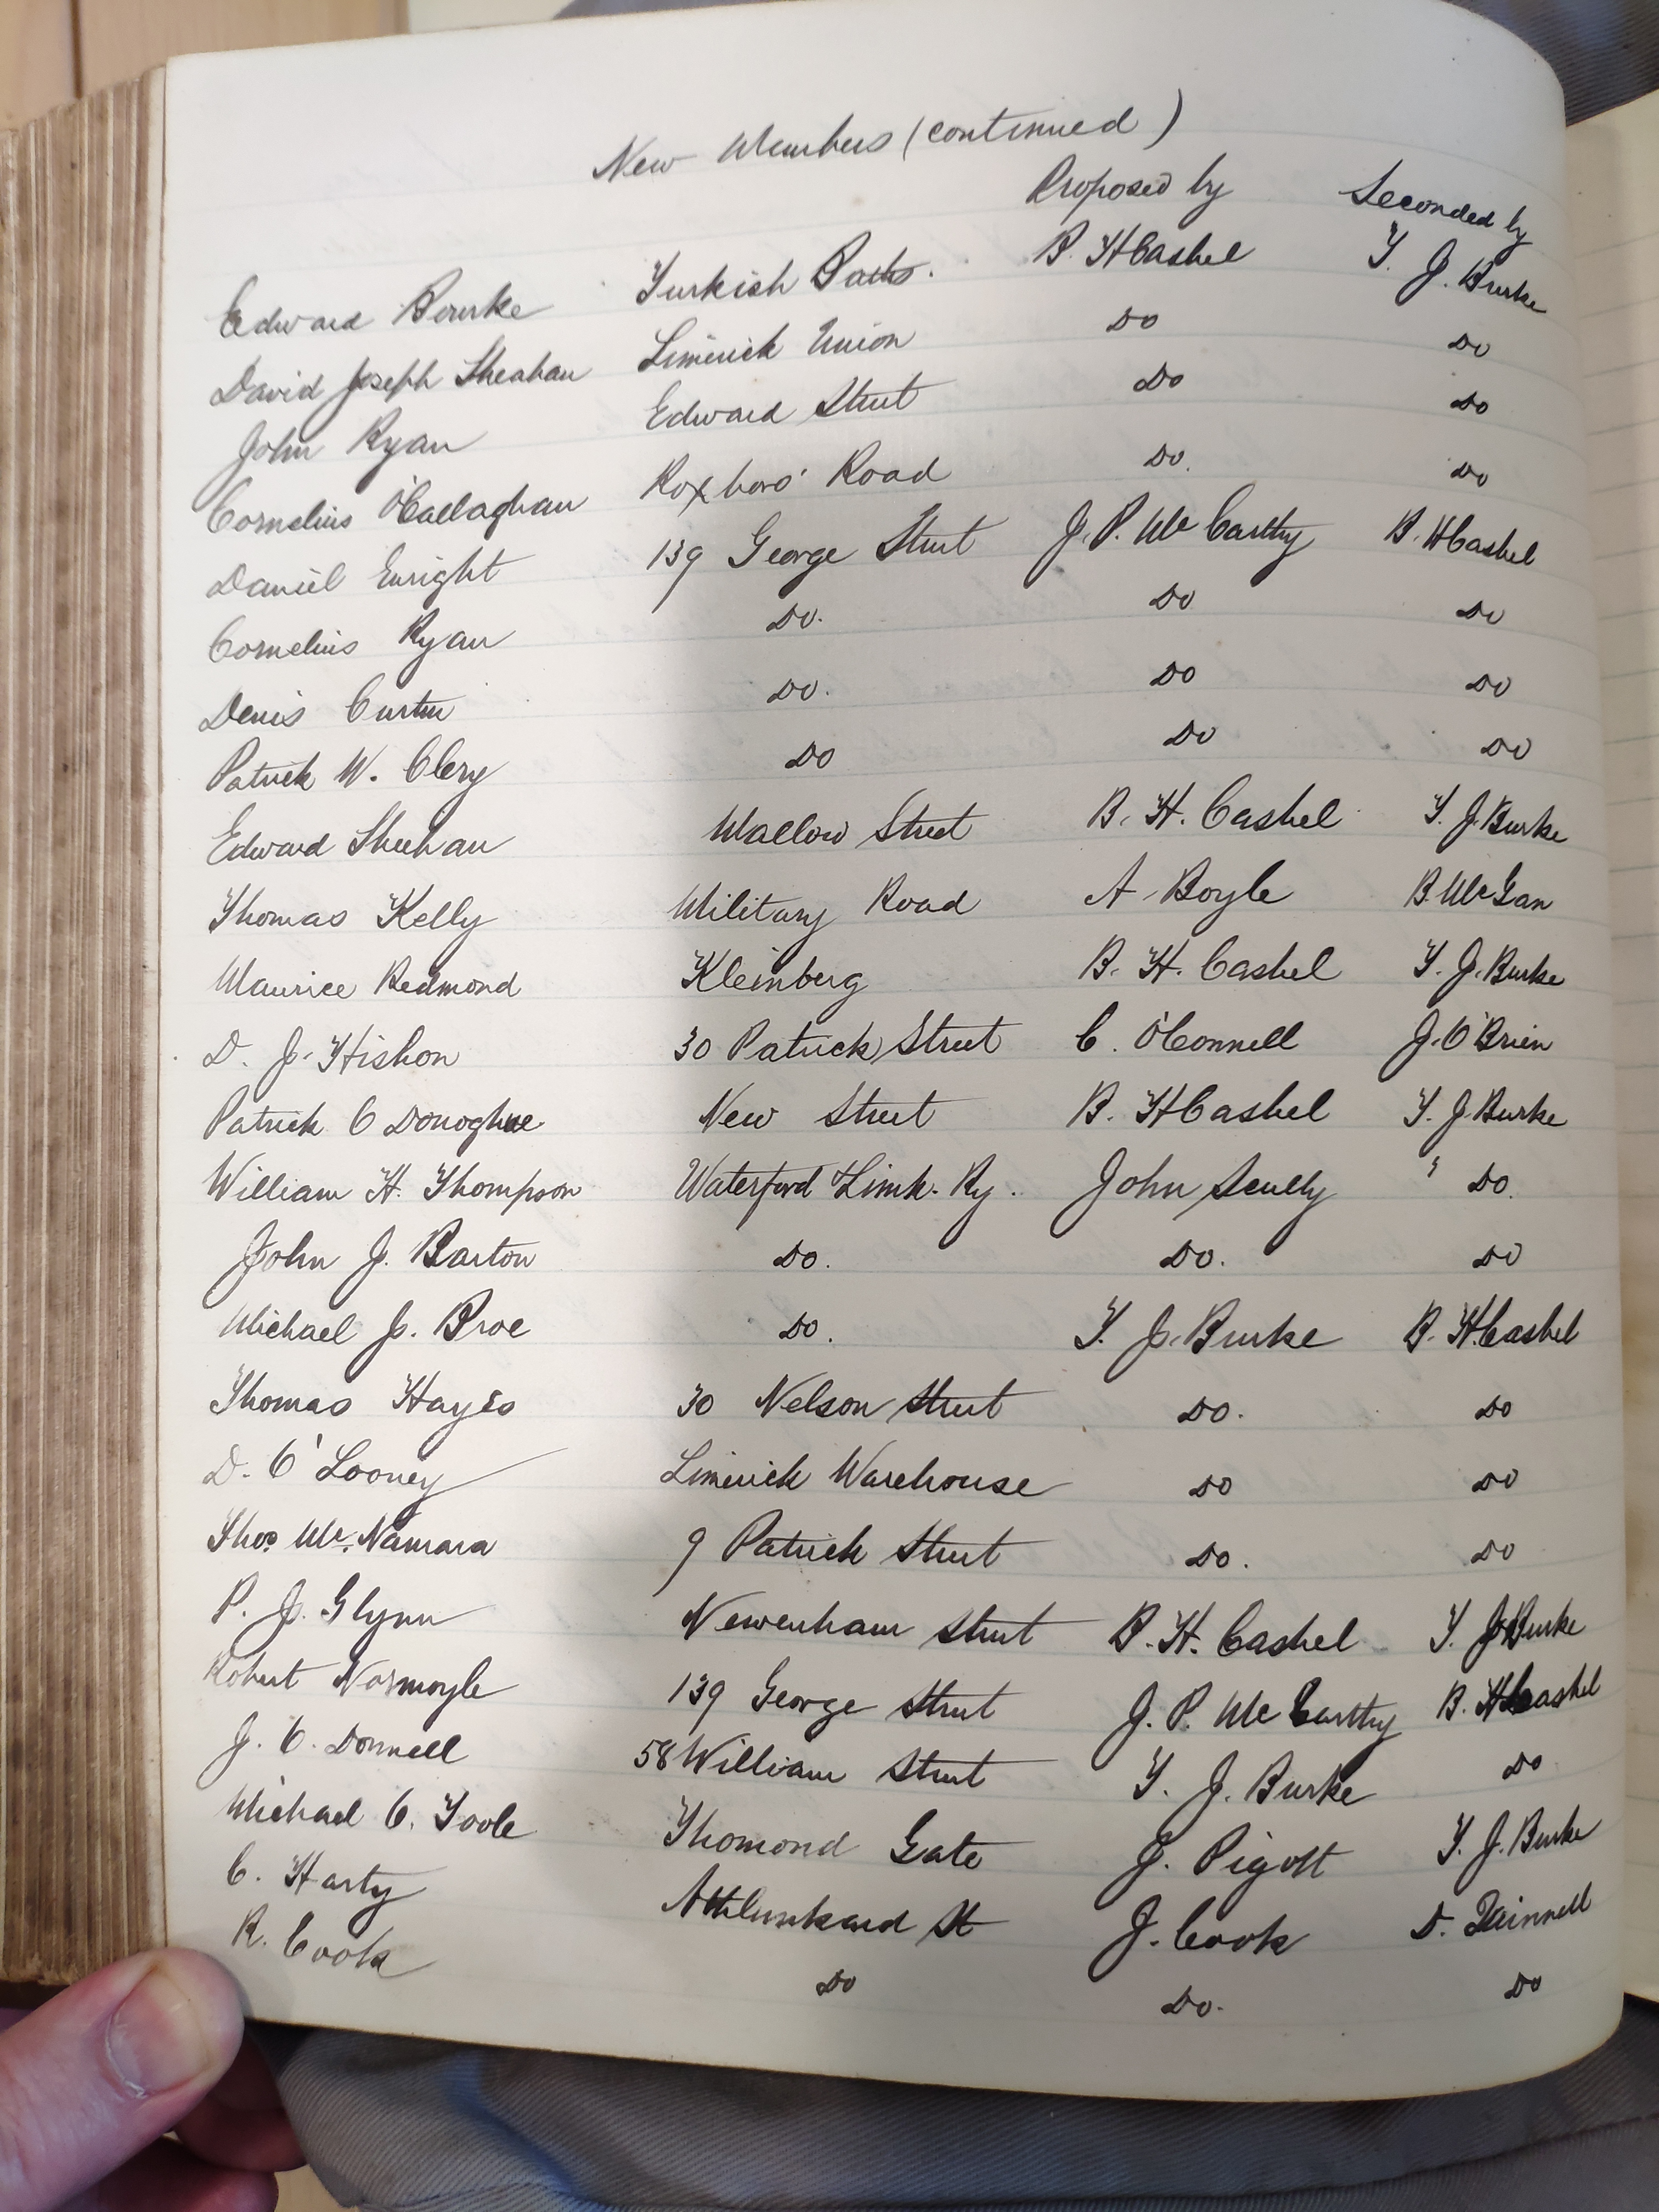 New Members (continued)
Proposed by Seconded by
Edward Bourke Turkish Baths. B. H Cashel T. J. Burke
David Joseph Sheahan Limerick Union Do Do
John Ryan Edward Street Do Do
Cornelius O'Callaghan Roxboro' Road Do. Do
Daniel Enright 139 George Street J. P. Mc Carthy B. H Cashel
Cornelius Ryan Do. Do Do
Denis Curtin Do. Do Do
Patrick W. Clery Do Do Do
Edward Sheehan Mallow Street B. H. Cashel T. J. Burke
Thomas Kelly Military Road A. Boyle B. McGan
Maurice Redmond Kleinberg B. H. Cashel T. J. Burke
D. J. Hishon 30 Patrick Street C. O'Connell J. O'Brien
Patrick O Donoghue New Street B. H Cashel T. J. Burke
William H. Thompson Waterford Limk. Ry. John Scully " Do.
John J. Barton Do. Do. Do
Michael J. Broe Do. T. J. Burke B. H. Cashel
Thomas Hayes 30 Nelson Street Do. Do
D. O' Looney Limerick Warehouse Do Do
Thos Mc. Namara 9 Patrick Street Do. Do
P. J. Glynn Newenham Street B. H. Cashel T. J Burke
Robert Normoyle 139 George Street J. P. Mc Carthy B. H Cashel
J. O. Donnell 58 William Street T. J. Burke Do
Michael O. Toole Thomond Gate J. Pigott T. J. Burke
C. Harty Athlunkard St J. Cook D.
R. Cook Do Do. Do